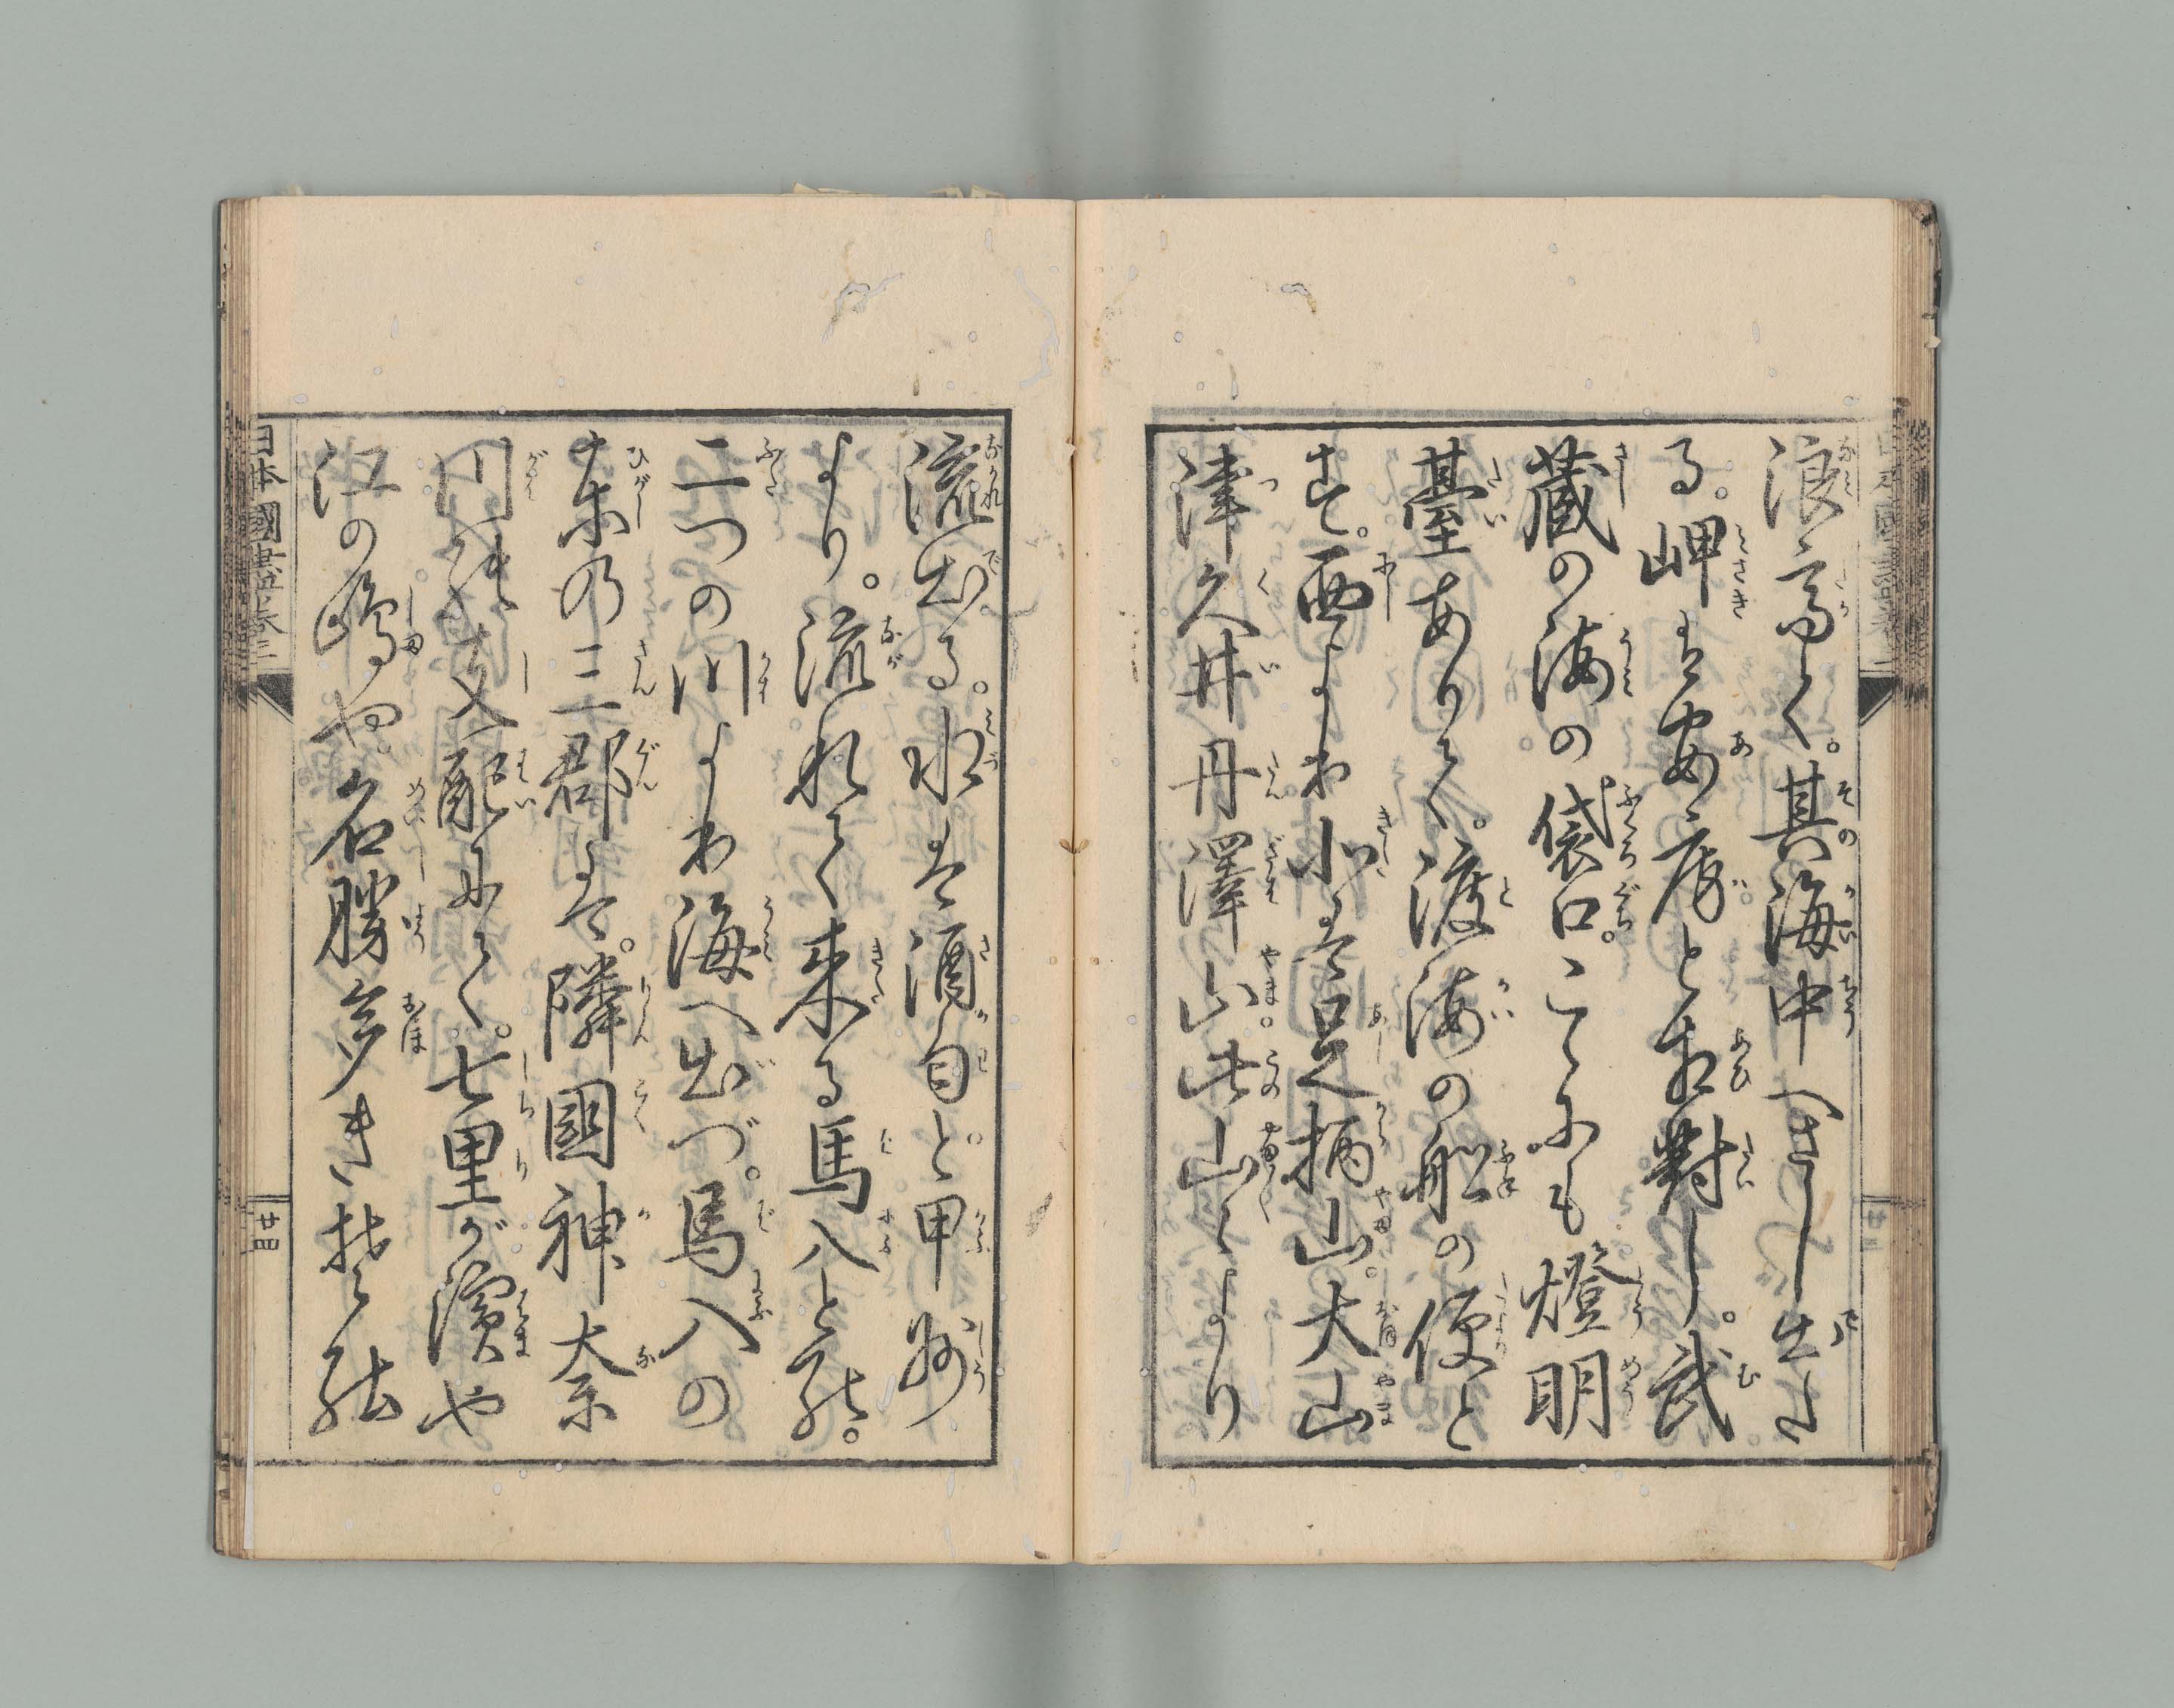 浪高く。其海中へさし出た
る。岬は安房と相對し。武
蔵の海の袋口。こゝにも燈明
臺ありて。渡海の舩の便と
す。西より北は足柄山。大山
津久井丹澤山。此山々より
流出る。水は酒匂と。甲州
より。流れて来る馬入と那。
二つの川より海へ出づ。馬入の
東の三郡は。隣國神奈
川縣支配にて。七里が濱や
江の嶋や名勝多き控縣
日本國盡巻三
廿四